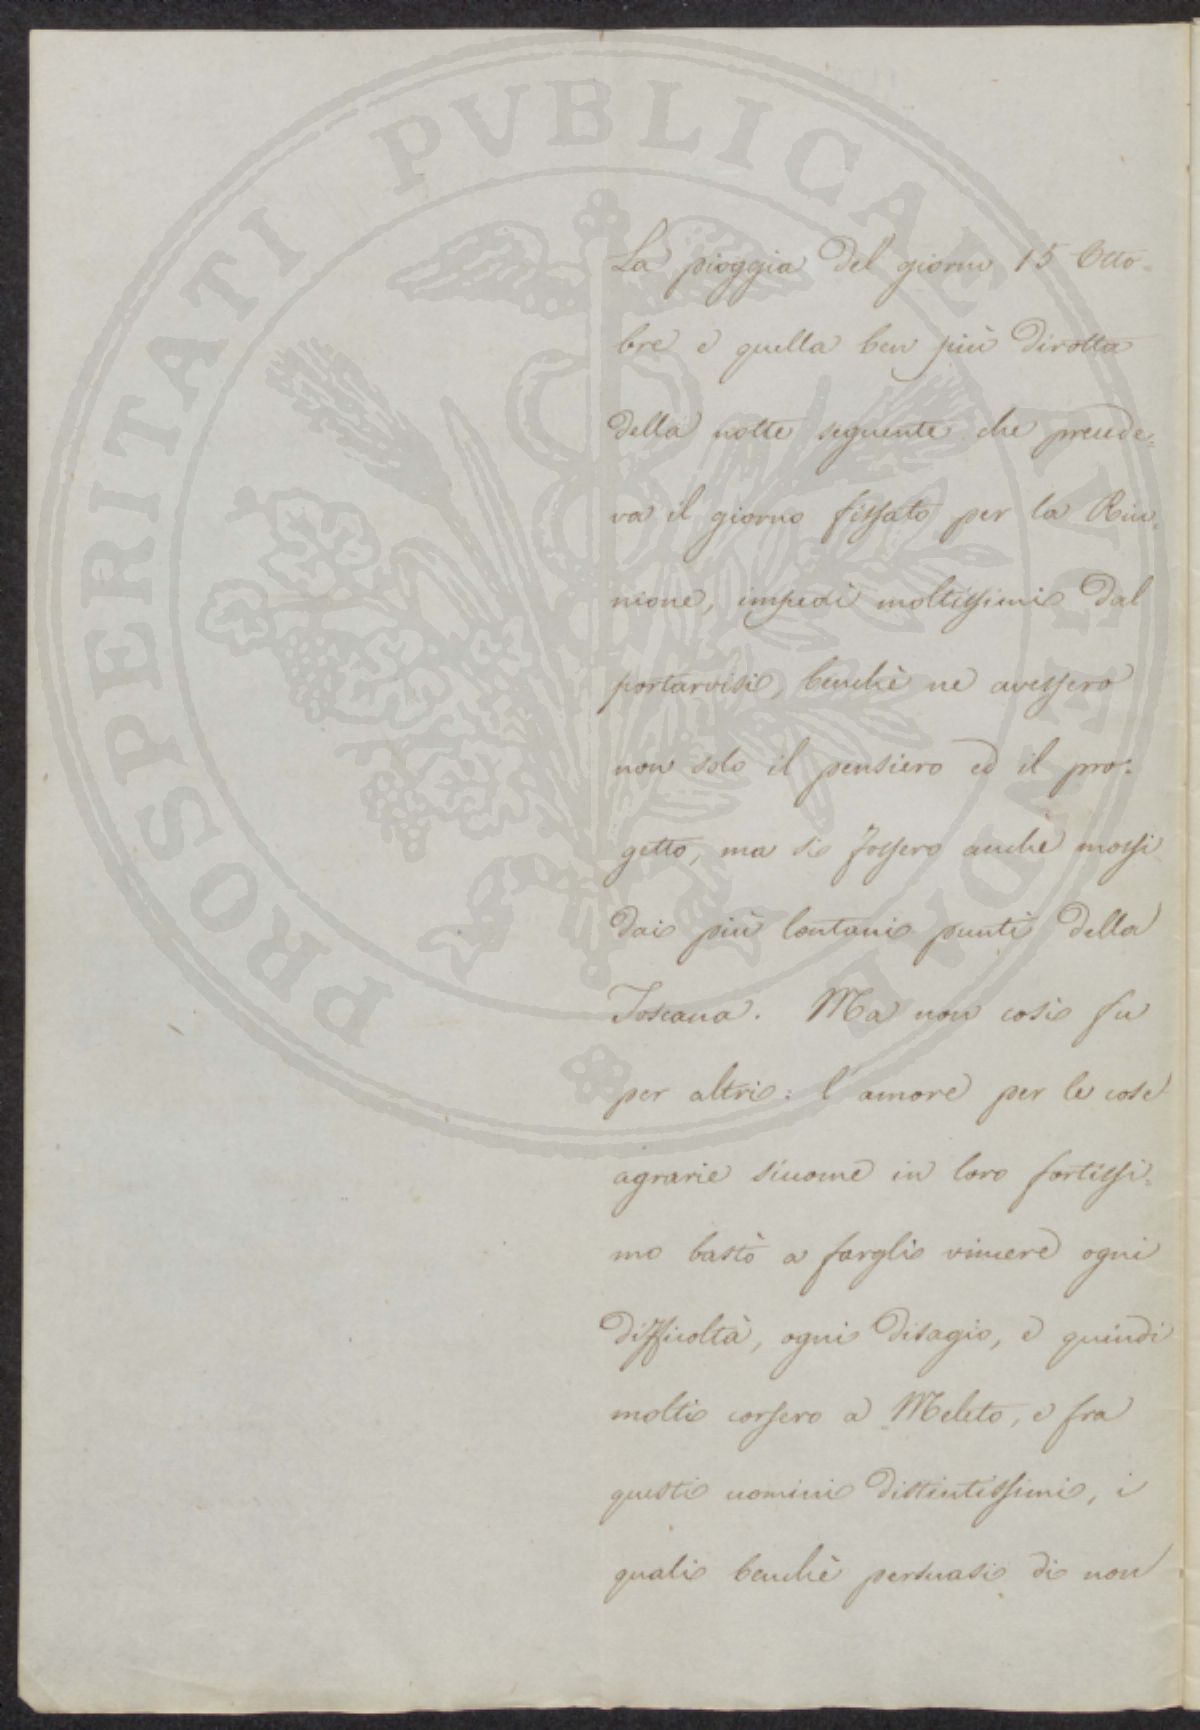 PROSPERITATI PVBLICAE AVGENDAE
La pioggia del giorno 15 Otto=
bre e quella ben più dirotta
della notte seguente che precede=
va il giorno fissato per la Riu=
nione, impedì moltissimi dal
portarvisi, benchè ne avessero
non solo il pensiero ed il pro=
getto, ma si fossero anche mossi
dai più lontani punti della
Toscana. Ma non così fu
per altri: l'amore per le cose
agrarie siccome in loro fortissi=
mo bastò a fargli vincere ogni
difficoltà, ogni disagio, e quindi
molti corsero a Meleto, e fra
questi uomini distintissimi, i
quali benchè persuasi di non